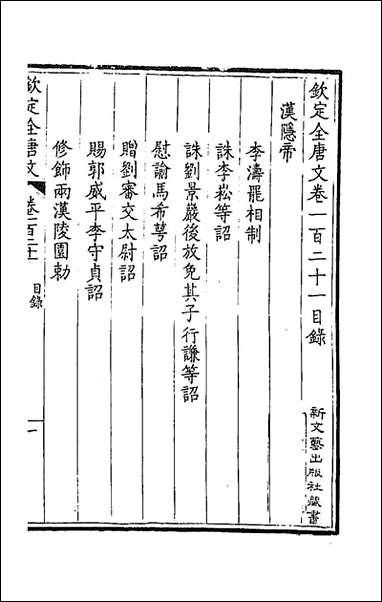 欽定全唐文卷一百二十一目錄
新文藝出版社藏書
漢隱帝
李濤罷相制
誅李崧等詔
誅劉景巖後放免其子行謙等詔
慰諭馬希萼詔
贈劉審交太尉詔
賜郭威平李守貞詔
修飾兩漢陵園勅
欽定全唐文
卷一百二十一
目錄
一